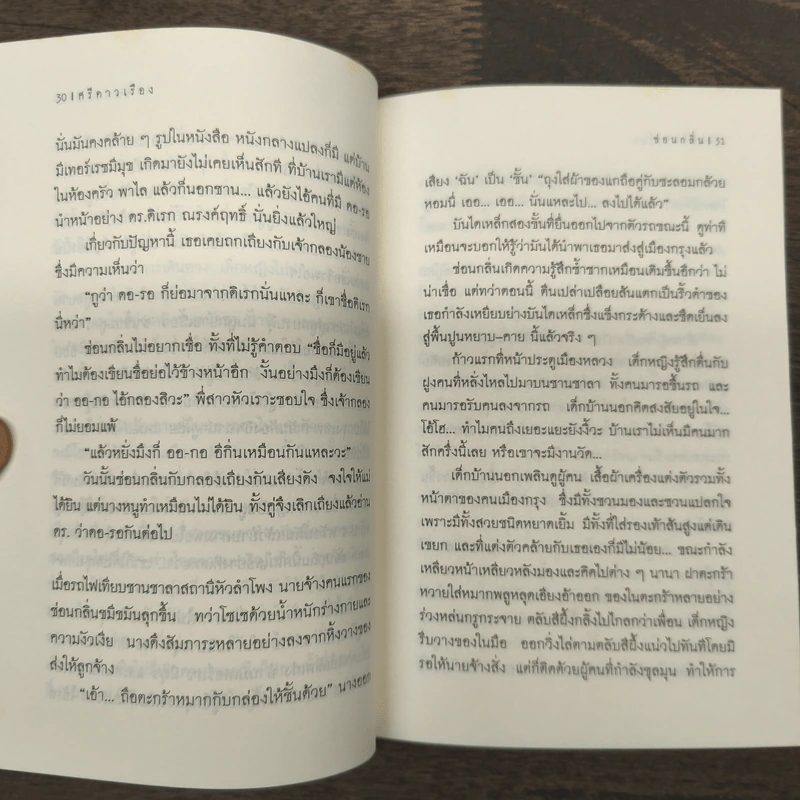 30 | ศรีดาวเรือง
นั่นมันคงคล้าย ๆ รูปในหนังสือ หนังกลางแปลงก็มี แต่บ้าน
มีเทอร์เรซมีมุข เกิดมายังไม่เคยเห็นสักที ที่บ้านเรามีแต่ห้อง
ในห้องครัว พาไล แล้วก็นอกชาน... แล้วยังไอ้คนที่มี ดอ-รอ
นำหน้าอย่าง ดร.ดิเรก ณรงค์ฤทธิ์ นั่นยิ่งแล้วใหญ่
เกี่ยวกับปัญหานี้ เธอเคยถกเถียงกับเจ้ากลองน้องชาย
ซึ่งมีความเห็นว่า
“กูว่า ดอ-รอ ก็ย่อมาจากดิเรกนั่นแหละ ก็เขาชื่อดิเรก
นี่หว่า”
ซ่อนกลิ่นไม่อยากเชื่อ ทั้งที่ไม่รู้คำตอบ “ชื่อก็มีอยู่แล้ว
ทำไมต้องเขียนชื่อย่อไว้ข้างหน้าอีก งั้นอย่างมึงก็ต้องเขียน
ว่า ออ-กอ ไอ้กลองสิวะ” พี่สาวหัวเราะชอบใจ ซึ่งเจ้ากลอง
ก็ไม่ยอมแพ้
“แล้วหยั่งมึงก็ ออ-กอ อีกิ่นเหมือนกันแหละวะ”
วันนั้นซ่อนกลิ่นกับกลองเถียงกันเสียงดัง จงใจให้แม่
ได้ยิน แต่นางหนูทำเหมือนไม่ได้ยิน ทั้งคู่จึงเลิกเถียงแล้วอ่าน
ดร. ว่าดอ-รอกันต่อไป
เมื่อรถไฟเทียบชานชาลาสถานีหัวลำโพง นายจ้างคนแรกของ
ซ่อนกลิ่นขมีขมันลุกขึ้น ทว่าโซเซด้วยน้ำหนักร่างกายและ
ความงัวเงีย นางดึงสัมภาระหลายอย่างลงจากหิ้งวางของ
ส่งให้ลูกจ้าง
“เอ้า... ถือตะกร้าหมากกับกล่องให้ชั้นด้วย” นางออก
ซ่อนกลิ่น | 31
เสียง ‘ฉัน’ เป็น ‘ชั้น’ “ถุงใส่ผ้าของแกถือคู่กับชะลอมกล้วย
หอมนี่ เออ... เออ... นั่นแหละไป... ลงไปได้แล้ว”
บันไดเหล็กสองขั้นที่ยื่นออกไปจากตัวรถขณะนี้ ดูท่าที
เหมือนจะบอกให้รู้ว่ามันได้นำพาเธอมาส่งสู่เมืองกรุงแล้ว
ซ่อนกลิ่นเกิดความรู้สึกซ้ำซากเหมือนเดิมขึ้นอีกว่า ไม่
น่าเชื่อ แต่ทว่าตอนนี้ ตีนเปล่าเปลือยส้นแตกเป็นริ้วดำของ
เธอกำลังเหยียบย่างบันไดเหล็กซึ่งแข็งกระด้างและชืดเย็นลง
สู่พื้นปูนหยาบ-คาย นี้แล้วจริง ๆ
ก้าวแรกที่หน้าประตูเมืองหลวง เด็กหญิงรู้สึกตื่นกับ
ฝูงคนที่หลั่งไหลไปมาบนชานชาลา ทั้งคนมารอขึ้นรถ และ
คนมารอรับคนลงจากรถ เด็กบ้านนอกคิดสงสัยอยู่ในใจ...
โอ้โฮ... ทำไมคนถึงเยอะแยะยังงี้วะ บ้านเราไม่เห็นมีคนมาก
สักครึ่งนี้เลย หรือเขาจะมีงานวัด...
เด็กบ้านนอกเพลินดูผู้คน เสื้อผ้าเครื่องแต่งตัวรวมทั้ง
หน้าตาของคนเมืองกรุง ซึ่งมีทั้งชวนมองและชวนแปลกใจ
เพราะมีทั้งสวยชนิดหยาดเยิ้ม มีทั้งที่ใส่รองเท้าส้นสูงแต่เดิน
เขยก และที่แต่งตัวคล้ายกับเธอเองก็มีไม่น้อย... ขณะกำลัง
เหลียวหน้าเหลียวหลังมองและคิดไปต่าง ๆ นานา ฝาตะกร้า
หวายใส่หมากพลูหลุดเฮียงอ้าออก ของในตะกร้าหลายอย่าง
ร่วงหล่นกรูกระจาย ตลับสีผึ้งกลิ้งไปไกลกว่าเพื่อน เด็กหญิง
รีบวางของในมือ ออกวิ่งไล่ตามตลับสีผึ้งแน่วไปทันทีโดยมิ
รอให้นายจ้างสั่ง แต่ก็ติดด้วยผู้คนที่กำลังชุลมุน ทำให้การ